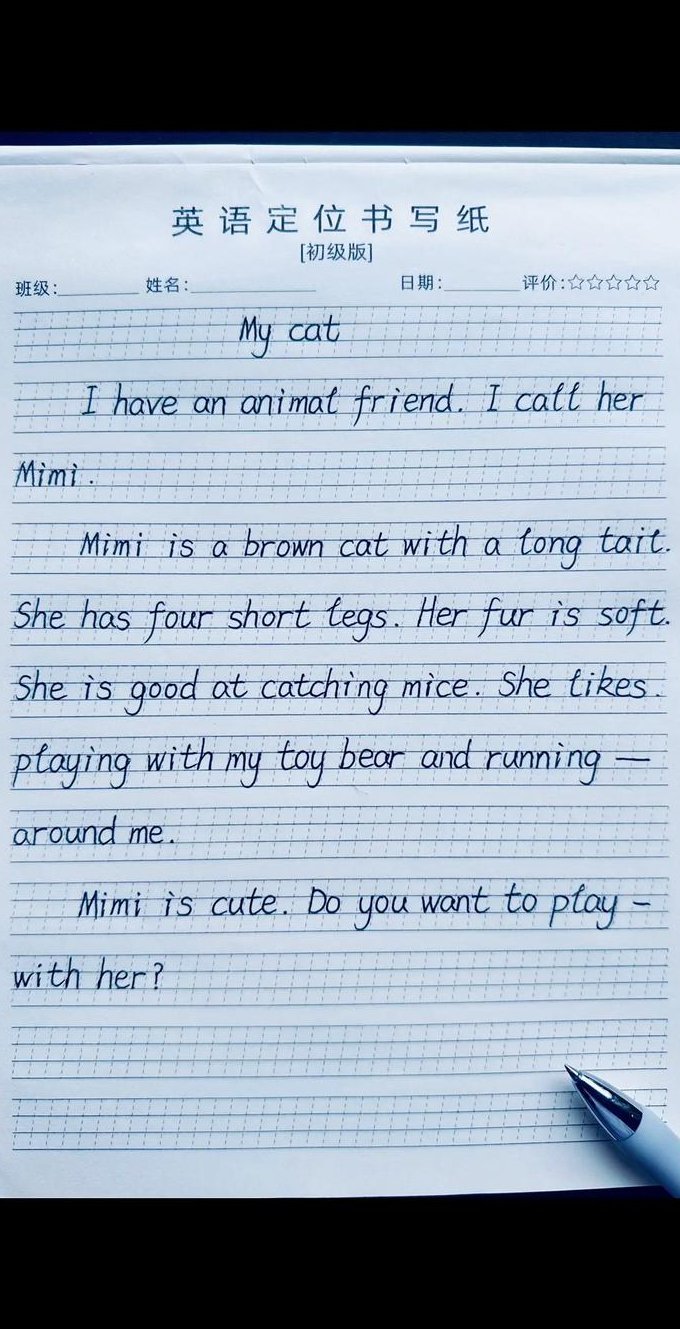 英语定位书写纸
[初级版]
班级:________ 姓名:____________ 日期:________ 评价:☆☆☆☆☆
My cat
I have an animal friend. I call her
Mimi.
Mimi is a brown cat with a long tail.
She has four short legs. Her fur is soft.
She is good at catching mice. She likes.
playing with my toy bear and running —
around me.
Mimi is cute. Do you want to play -
with her?